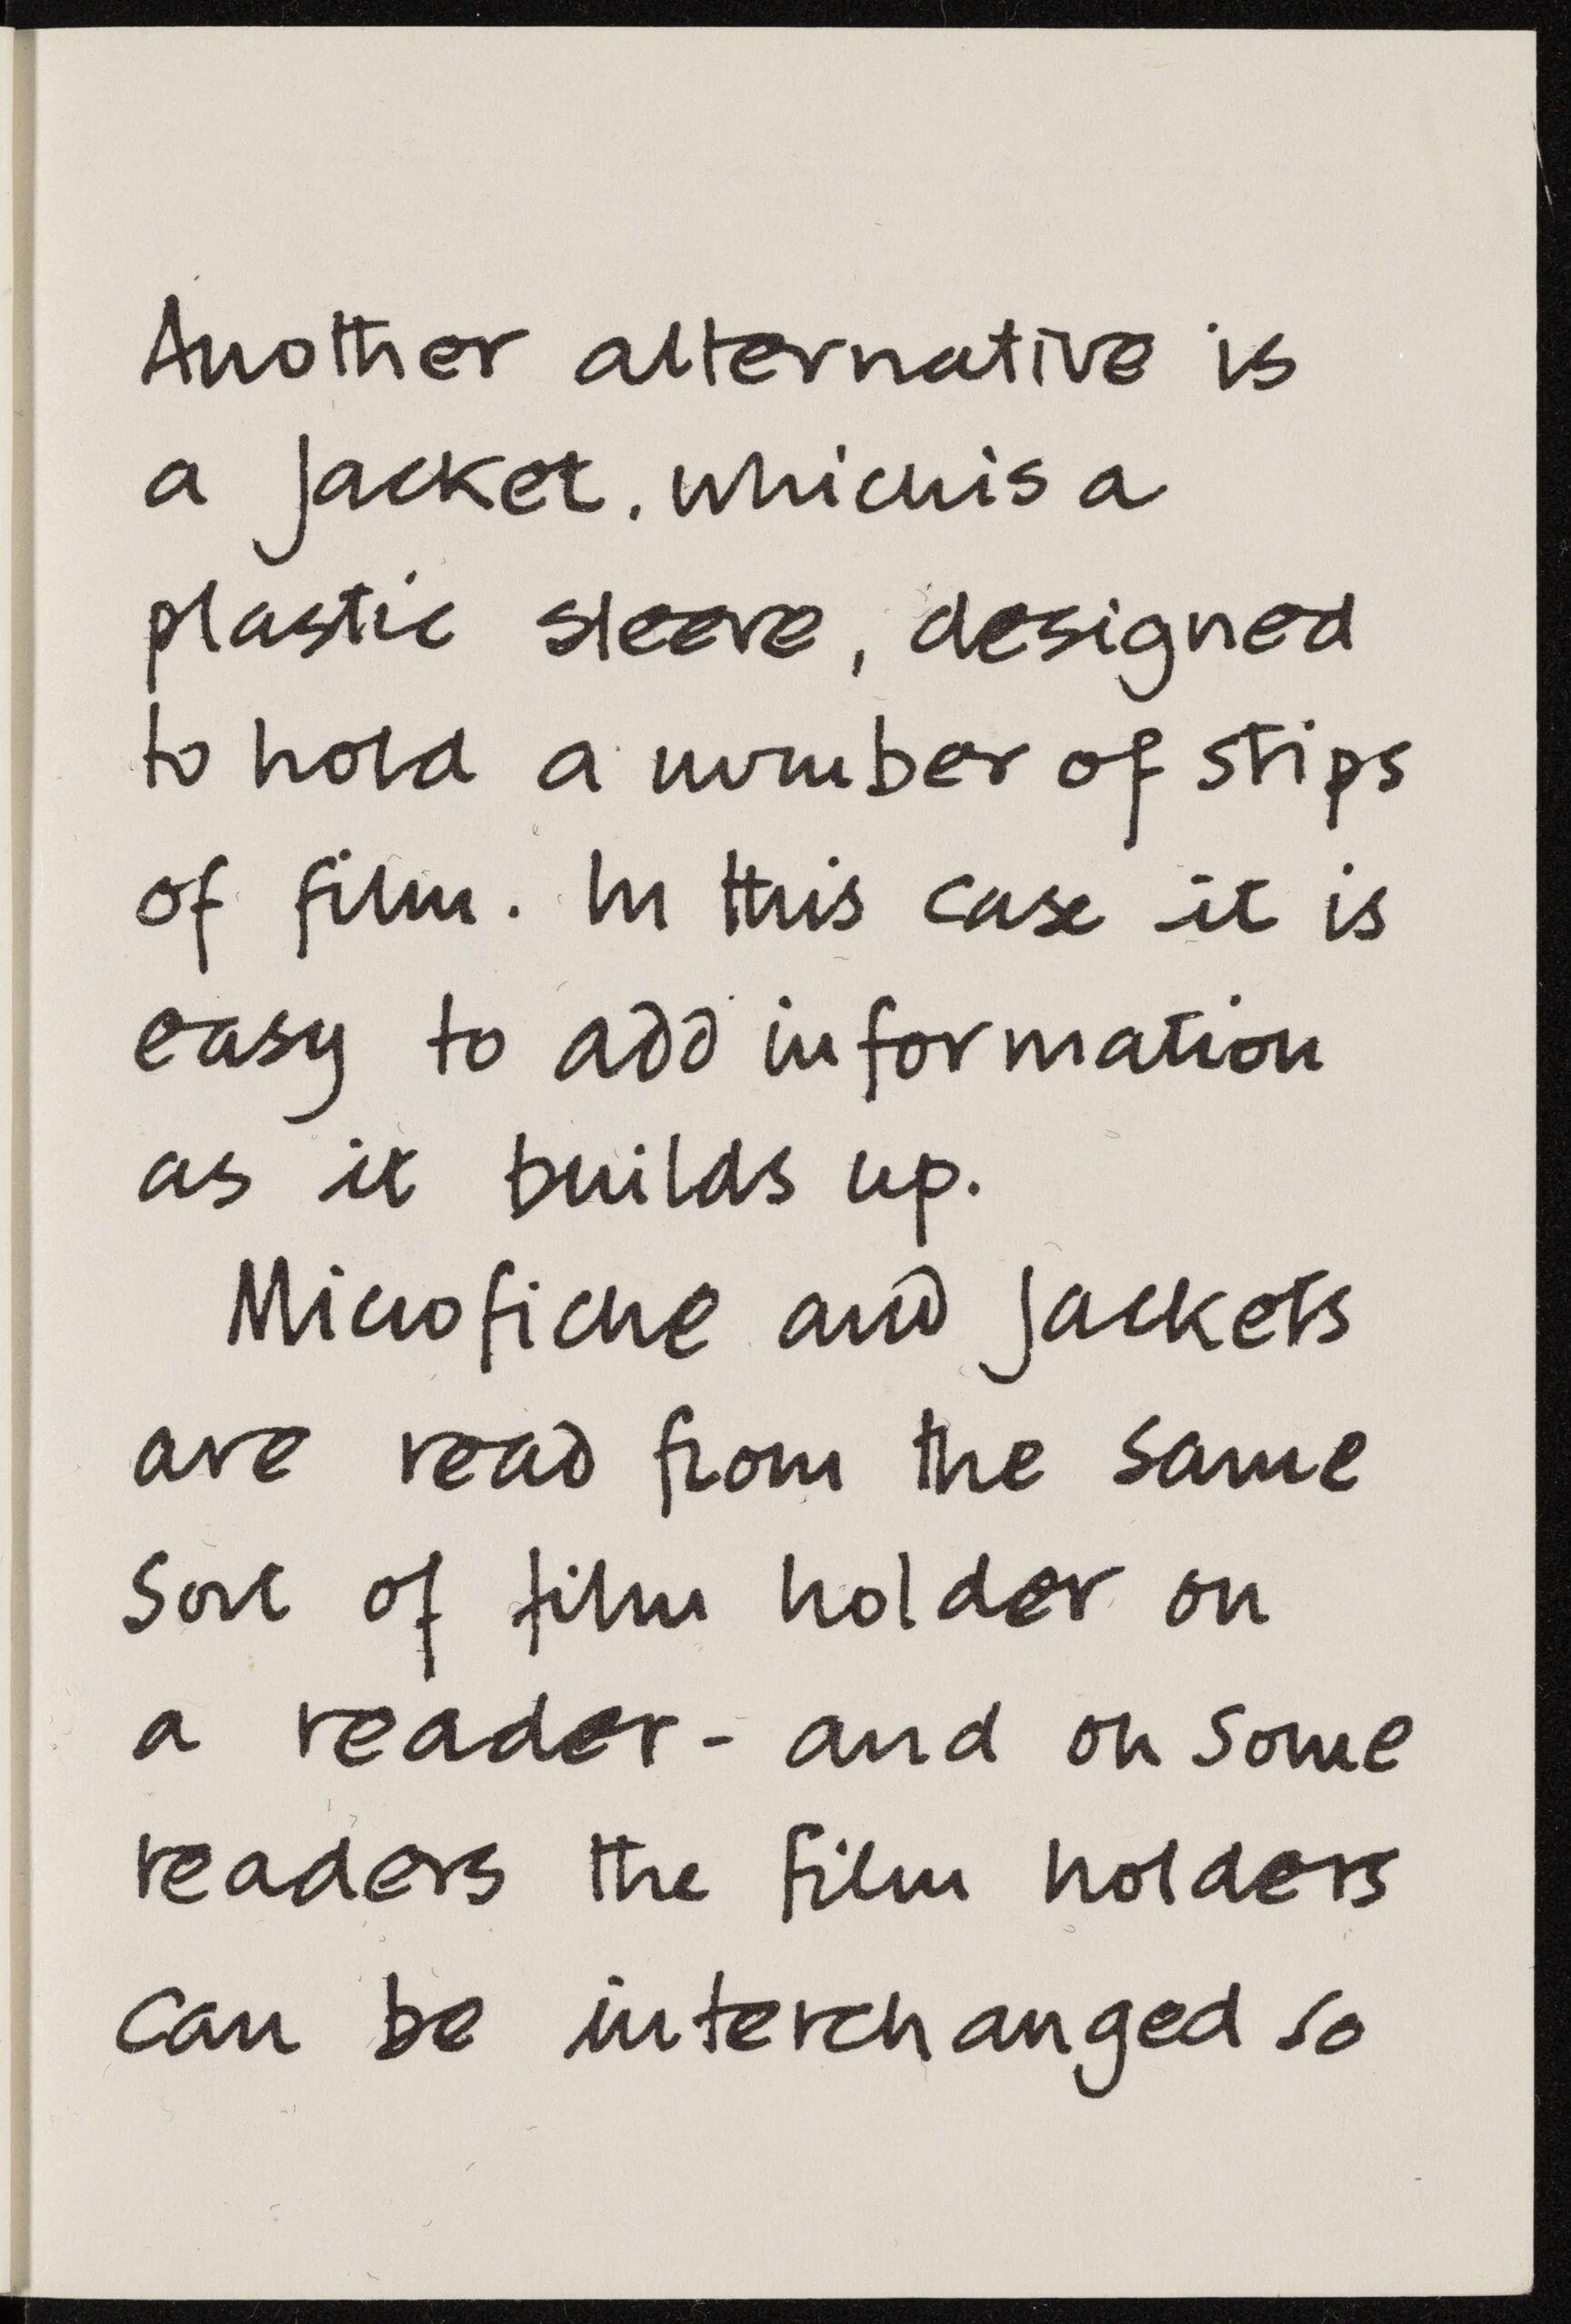 Another alternative is
a jacket, which is a
plastic sleeve, designed
to hold a number of stips
of film. In this case it is
easy to add information
as it builds up.
Microfiche and jackets
are read from the same
sort of film holder on
a reader - and on some
readers the film holders
can be interchanged so